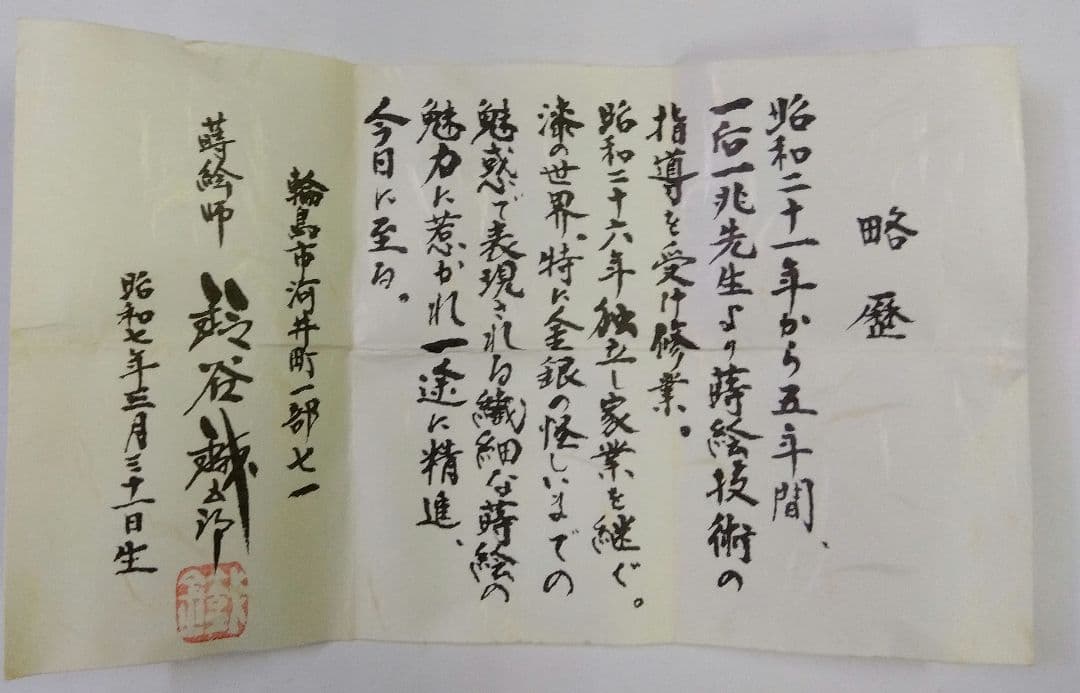 略歴
昭和二十一年から五年間、
一后一兆先生より蒔絵技術の
指導を受け修業。
昭和二十六年独立し家業を継ぐ。
漆の世界、特に金銀の怪しいまでの
魅惑で表現される繊細な蒔絵の
魅力に惹かれ一途に精進、
今日に至る。
輪島市河井町一部七一
蒔絵師 鈴谷鐵五郎
昭和七年三月三十一日生
鐵